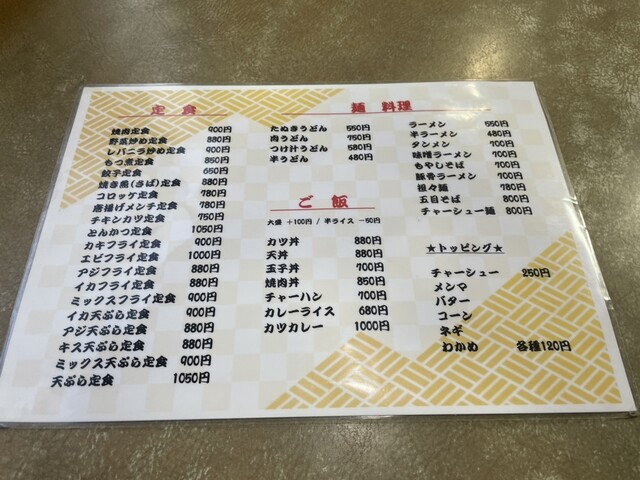 定食
焼肉定食 900円
野菜炒め定食 880円
レバニラ炒め定食 900円
もつ煮定食 850円
餃子定食 650円
焼き魚(さば)定食 880円
コロッケ定食 780円
唐揚げメンチ定食 780円
チキンカツ定食 750円
とんかつ定食 1050円
カキフライ定食 900円
エビフライ定食 1000円
アジフライ定食 880円
イカフライ定食 880円
ミックスフライ定食 900円
イカ天ぷら定食 900円
アジ天ぷら定食 880円
キス天ぷら定食 880円
ミックス天ぷら定食 900円
天ぷら定食 1050円
麺 料理
たぬきうどん 550円
肉うどん 750円
つけ汁うどん 580円
半うどん 480円
ラーメン 550円
半ラーメン 480円
タンメン 700円
味噌ラーメン 700円
もやしそば 700円
豚骨ラーメン 700円
担々麺 780円
五目そば 800円
チャーシュー麺 800円
ご飯
大盛 +100円 / 半ライス -50円
カツ丼 880円
天丼 880円
玉子丼 700円
焼肉丼 850円
チャーハン 700円
カレーライス 680円
カツカレー 1000円
★トッピング★
チャーシュー 250円
メンマ
バター
コーン
ネギ
わかめ 各種120円